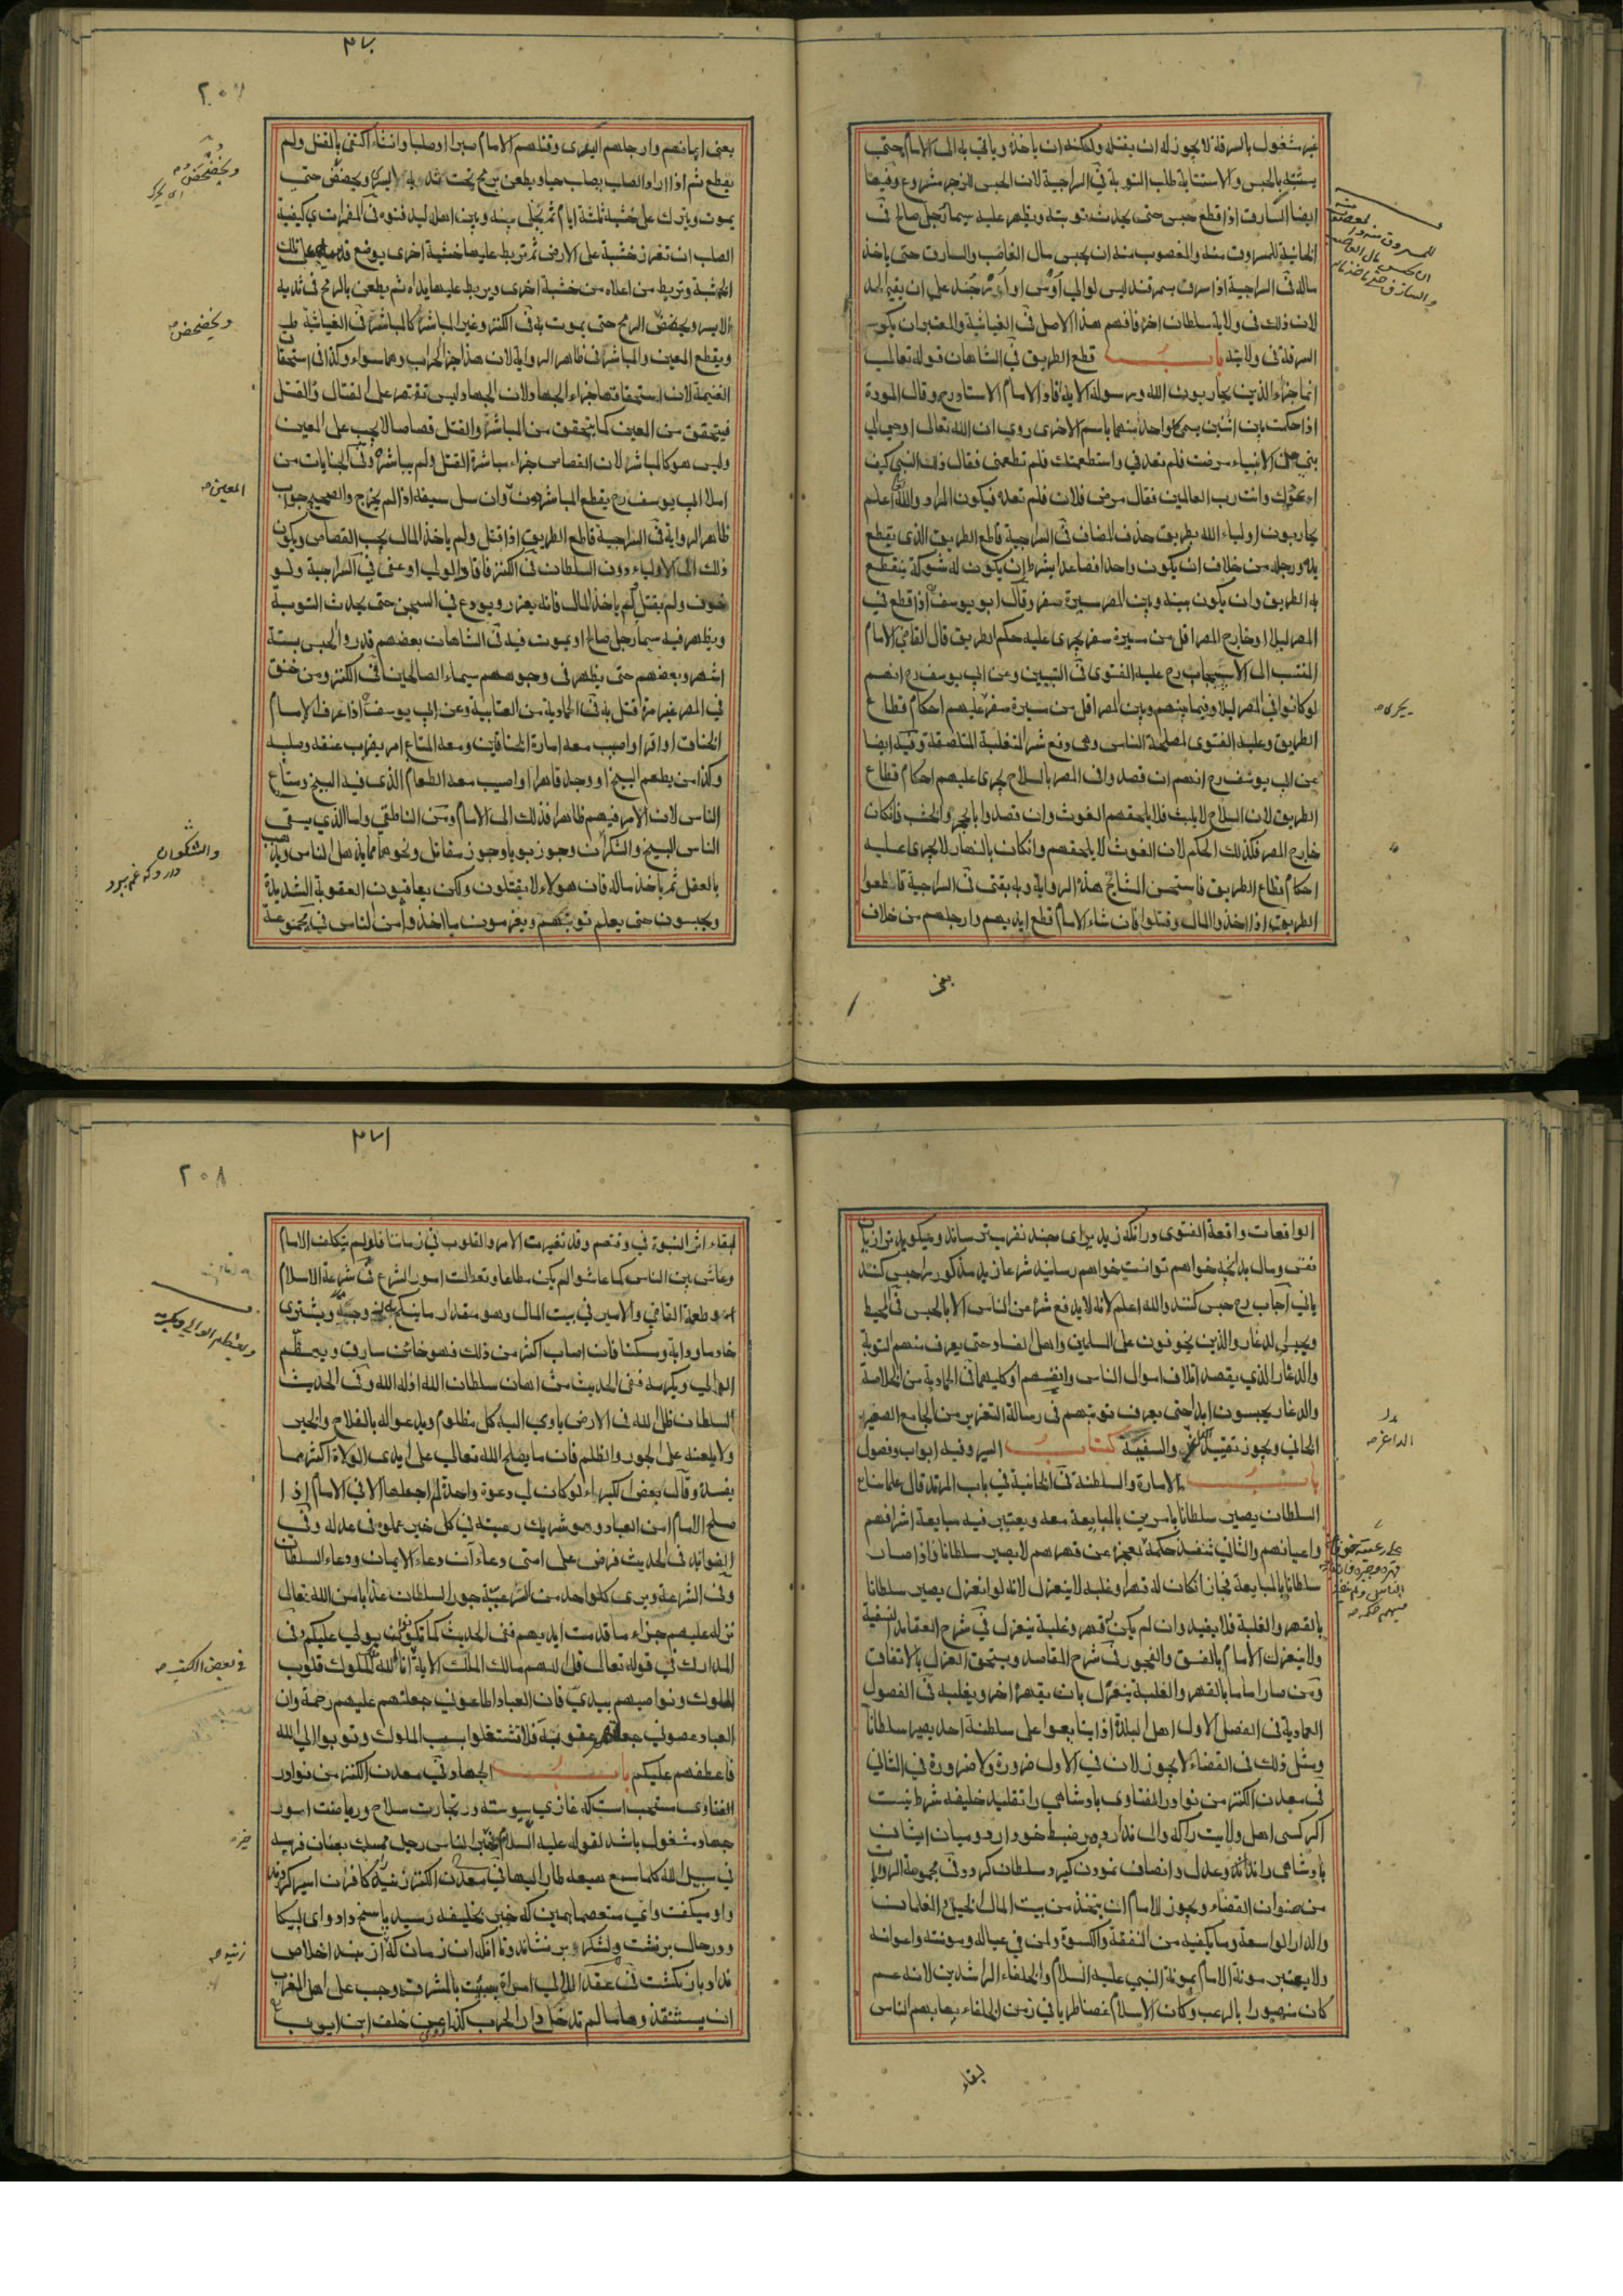 غير مشغول بالسرقة لا يجوز له ان يقتله ولكنه ان ياخذه وياتي به الى الامام حتى
يستتبه بالحبس والاستتابة طلب التوبة في السراجية لان الحبس للزجر مشروع وفيها
ايضا السارق اذا قطع حبس حتى يحدث توبته ويظهر عليه سيما رجل صالح في
الخانية للمسروق منه والمغصوب منه ان يحبس مال الغاصب والسارق حتى ياخذ
ماله في السراجية اذا سرق بسمرقند ليس لوالي اوش او اوزجند على ان يقيم الحد
لان ذلك في ولاية سلطان اخر فافهم هذا الاصل في الغياثية والمعتبر ان يكون
السرقة في ولايته باب قطع الطريق في الشاهان قوله تعالى
انما جزاء الذين يحاربون الله ورسوله الاية افاد الامام الاستاد رح وقال المودة
اذا حكمت بين اثنين يسمى كل واحد منهما باسم الاخرى روي ان الله تعالى اوحى الى
نبي من الانبياء مرضت فلم تعدني واستطعمتك فلم تطعمني فقال ذلك النبي كيف
اعودك وانت رب العالمين فقال مرض فلان فلم تعده فيكون المراد والله اعلم
يحاربون اولياء الله بطريق حذف المضاف في السراجية قاطع الطريق الذي يقطع
يده ورجله من خلاف ان يكون واحدا فصاعدا بشرط ان يكون له شوكة ينقطع
به الطريق وان يكون بينه وبين المصر مسيرة سفر وقال ابو يوسف اذا قطع في
المصر ليلا او خارج المصر اقل من مسيرة سفر يجرى عليه حكم الطريق قال القاضي الامام
المنتسب الى الاسبيجاب رح عليه الفتوى في التبيين وعن ابي يوسف رح انهم
لو كانوا في المصر ليلا وفيما بينهم وبين المصر اقل من مسيرة سفر عليهم احكام قطاع
الطريق وعليه الفتوى لمصلحة الناس وهى دفع شر المتغلبة المتلصقة وفيه ايضا
عن ابي يوسف رح انهم ان قصدوا في المصر بالسلاح يجرى عليهم احكام قطاع
الطريق لان السلاح لا يلبث فلا يلحقهم الغوث وان قصدوا بالحجر والخشب فانكان
خارج المصر فكذلك الحكم لان الغوث لا يلحقهم وانكان بالنهار لا يجرى عليه
احكام قطاع الطريق فاستحسن المشائخ هذه الرواية وبه يفتى في السراجية قاطعوا
الطريق اذا اخذوا المال وقتلوا فان شاء الامام قطع ايديهم وارجلهم من خلاف
يجرى
يعنى
٣٧٠
٢٠٧
يعنى ايمانهم وارجلهم اليسرى وقتلهم الامام صبرا او صلبا وان شاء اكتفى بالقتل ولم
يقطع ثم اذا اراد الصلب يصلب حيا ويطعن برمح تحت ثديه الايسر ويخضخض حتى
يموت ويترك على خشبة ثلثة ايام ثم يخلى بينه وبين اهله ليدفنوه في المضمرات كيفية
الصلب ان تغرز خشبة على الارض ثم تربط عليها خشبة اخرى يوضع قدماه على تلك
الخشبة وتربط من اعلاه من خشبة اخرى ويربط عليها يداه ثم يطعن بالرمح في ثديه
الايسر ويخضخض الرمح حتى يموت به في الكنز وغير المباشر كالمباشر في الغياثية
ويقطع المعين والمباشر في ظاهر الرواية لان هذا جزاء الحراب وهما سواء وكذا في استحقاق
الغنيمة لان استحقاقها جزاء الجهاد ولان الجهاد ليس تقتصر على القتال والقتل
فيتحقق من المعين كما يتحقق من المباشر والقتل قصاصا لا يجب على المعين
وليس هو كالمباشر لان القصاص جزاء مباشرة القتل ولم يباشره وفي الجنايات من
املاء ابي يوسف رح يقطع المباشر دون وان سل سيفه اذا لم يخرج والصحيح جواب
ظاهر الرواية في السراجية قاطع الطريق اذا قتل ولم ياخذ المال يجب القصاص ويكون
ذلك الى الاولياء دون السلطان في الكنز فاقاد الولي او عفى في السراجية ولو
خوف ولم يقتل ولم ياخذ المال فانه يعزر ويودع في السجن حتى يحدث التوبة
ويظهر فيه سيما رجل صالح او يموت فيه في الشاهان بعضهم قدروا الحبس بستة
اشهر وبعضهم حتى يظهر في وجوههم سيماء الصالحين في الكنز ومن خنق
في المصر غير مرة قتل به في الحمادية من العتابية وعن ابي يوسف اذا عرف الامام
الخناق او اقر او اصيب معه امارة الخناقين ومعه المتاع امر بضرب عنقه وصلبه
وكذا من يطعم البنج او وجد قاهرا او اصيب معه الطعام الذى فيه البنج ومتاع
الناس لان الامر فيهم ظاهر فذلك الى الامام ومن الناطقي واما الذي يسقي
الناس البنج والشكران وجوز بويا وجوز مقاتل ونحوهما مما يذهل الناس ويذهب
بالعقل ثم ياخذ ماله فان هولاء لا يقتلون ولكن يعاقبون العقوبة الشديدة
ويحبسون حتى يعلم توبتهم ويغرمون ما اخذوا من الناس في مجموعة
ويخضخض
ويخضخض
المعين
والشكران
٣٧١
٢٠٨
الواقعات واقعة الفتوى
نفى ومال بد انچه خواهم توانست خواهم رسانيد شرعا زيد مذكور را حبس كنند
يا ني اجاب رح حبس كنند والله اعلم لانه لا يدفع شره عن الناس الا بالحبس في المحيط
ويحبس الدعار والذين يخوفون على المسلمين واهل الفساد حتى يعرف منهم التوبة
والدعار الذي يقصد اتلاف اموال الناس وانفسهم او كليهما في الحمادية من الخلاصة
والدعار يحبسون ابدا حتى يعرف توبتهم في رسالة التعزير من الجامع الصغير
الخاني ويجوز تقييد الداعر والسفيه كتاب السير وفيه ابواب وفصول
باب الامارة والسلطنة في الخانية في باب المرتد قال علماءنا
السلطان يصير سلطانا بامرين بالمبايعة معه ويعتبر فيه مبايعة اشرافهم
واعيانهم والثاني تنفيذ حكمه يعجز عن قهرهم لا يصير سلطانا فاذا صار
سلطانا بالمبايعة فجار انكان له قهر او غلبة لا ينعزل لانه لو انعزل يصير سلطانا
بالقهر والغلبة فلا يفيد وان لم يكن له قهر وغلبة ينعزل في شرح العقايد النسفية
ولا ينعزل الامام بالفسق والفجور في شرح المقاصد ويستحق العزل بالاتفاق
ومن صار اماما بالقهر والغلبة ينعزل بان يقهره اخر ويغلبه في الفصول
العمادية في الفصل الاول اهل البلدة اذا تبايعوا على سلطنة احد يصير سلطانا
ومثل ذلك في القضاء لا يجوز لان في الاول ضرورة ولا ضرورة في الثاني
في معدن الكنز من نوادر الفتاوى بادشاهى را تقليد خليفه شرط نيست
اكر كسى اهل ولايت را كه والى ندارد در ضبط خود ارد وميان ايشان
بادشاهى راند وعدل وانصاف نمودن كيرد سلطان كردد في مجموعة الروايات
من صنوان القضاء ويجوز للامام ان يتخذ من بيت المال الخيل والغلمان
والدار الواسعة وما يكفيه من النفقة والكسوة ولمن في عياله ومونته واعوانه
ولا يعتبر مونة الامام بمونة النبي عليه السلام والخلفاء الراشدين لانه عم
كان منصورا بالرعب وكان الاسلام غضا طريا في زمن الخلفاء يهابهم الناس
الداعر
لبقاء
لبقاء اثر النبوة في وقتهم وقد تغيرت الامور والقلوب في زماننا فلو لم يتكلف الامام
وعاش بين الناس كما عاشوا لم يكن مطاعا وتعطلت امور الشرع في شرعة الاسلام
وطعمة القاضي والامير في بيت المال وهو مقدار ما ينكح به زوجة ويشترى
خادما ودابة ومسكنا فان اصاب اكثر من ذلك فهو خائن سارق ويعظم
الوالي ويكرمه ففي الحديث من اهان سلطان الله اذله الله وفي الحديث
السلطان ظل لله في الارض ياوي اليه كل مظلوم ويدعو اله بالفلاح والخير
ولا يلعنه على الجور والظلم فان ما يصلح الله تعالى على ايدى الولاة اكثر مما
يفسد وقال بعض الكبراء لو كان لي دعوة واحدة لم اجعلها الا في الامام اذا
صلح الامام امن العباد وهو شريك رعيته في كل خير عملوه في عدله وفي
الفوائد في الحديث فرض على امتى دعاءان دعاء الايمان ودعاء السلطان
وفي الشرعة ويرى كل واحد من الرعية جور السلطان عذابا من الله تعالى
نزل عليهم جزاء ما قدمت ايديهم ففي الحديث كما تكونون يولى عليكم وفى
المدارك في قوله تعالى قل اللهم مالك الملك الاية انا الله ملك الملوك قلوب
الملوك ونواصيهم بيدي فان العباد اطاعوني جعلتهم عليهم رحمة وان
العباد عصوني جعلتهم عقوبة فلا تشتغلوا بسب الملوك وتوبوا الي الله
فاعطفهم عليكم باب الجهاد في معدن الكنز من نوادر
الفتاوى مستحب است كه غازي پيوسته در تجارت سلاح ورياضت امور
جهاد مشغول باشد لقوله عليه السلام خير الناس رجل ممسك بعنان فرسه
في سبيل الله كلما سمع هيعة طار اليها في معدن الكنز زنيه كافران اسير كردند
واو ميكفت واي معتصما همين كه خبر بخليفه رسيد پاسخ داد واى لبيكا
ودر حال بر نشست ولشكر بر نشاند وتا انكه ان زمان كه از بند اخلاص
نداد باز نكشت في عقد اللالي امراة سبيت بالمشرق وجب على اهل المغرب
ان يستنقذوها ما لم تدخل دار الحرب كذا عن خلف ابن ايوب
ويعظم الوالي ويكرمه
في بعض الكتب